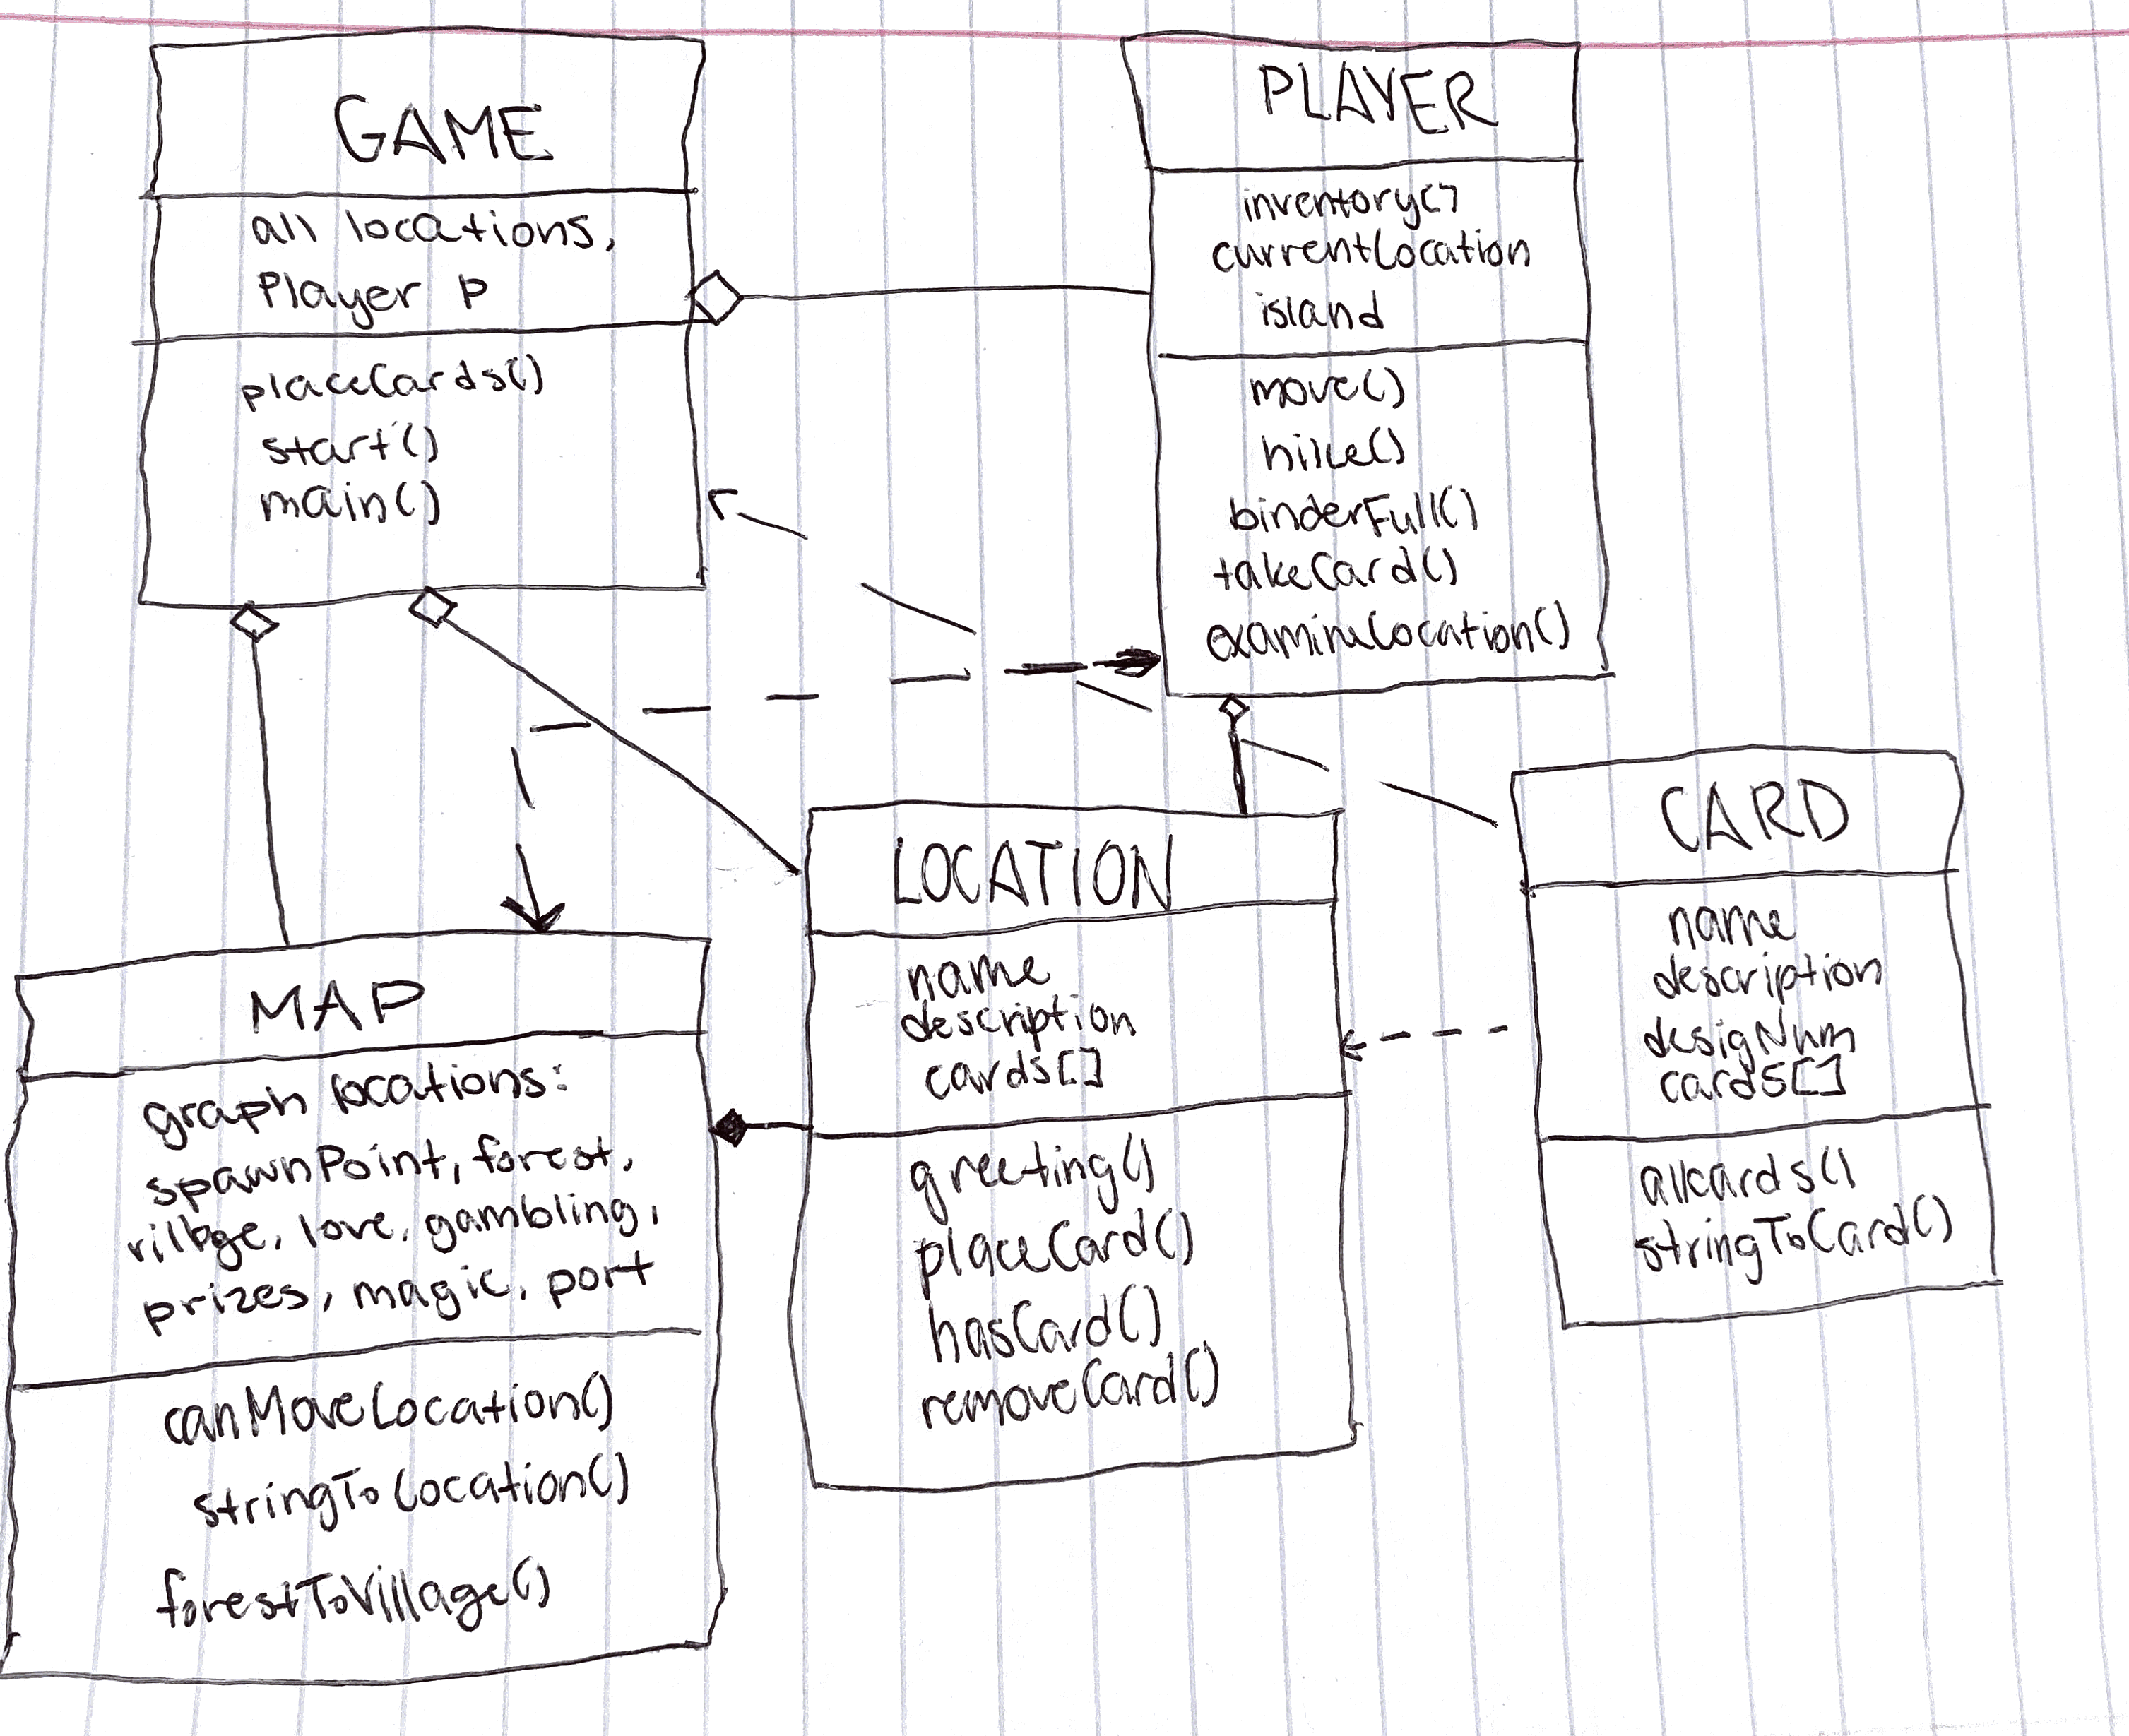 GAME
all locations,
Player p
placeCards()
start()
main()
PLAYER
inventory[]
currentLocation
island
move()
hike()
binderFull()
takeCard()
examineLocation()
MAP
graph locations:
spawnPoint, forest,
village, love, gambling,
prizes, magic, port
canMoveLocation()
stringToLocation()
forestToVillage()
LOCATION
name
description
cards[]
greeting()
placeCard()
hasCard()
removeCard()
CARD
name
description
desigNum
cards[]
allCards()
stringToCard()